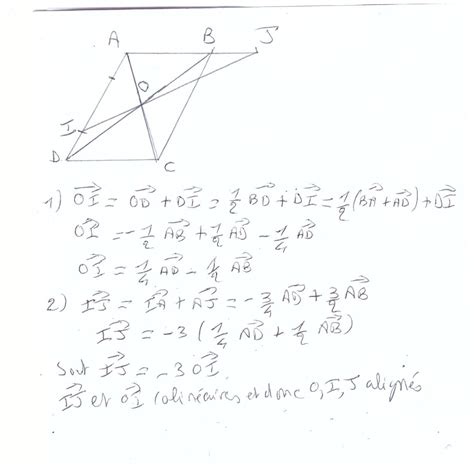 A B J
O
I
D C
1) \vec{OI} = \vec{OD} + \vec{DI} = \frac{1}{2} \vec{BD} + \vec{DI} = \frac{1}{2} (\vec{BA} + \vec{AD}) + \vec{DI}
\vec{OI} = -\frac{1}{2} \vec{AB} + \frac{1}{2} \vec{AD} - \frac{1}{4} \vec{AD}
\vec{OI} = \frac{1}{4} \vec{AD} - \frac{1}{2} \vec{AB}
2) \vec{IJ} = \vec{IA} + \vec{AJ} = -\frac{3}{4} \vec{AD} + \frac{3}{2} \vec{AB}
\vec{IJ} = -3 (\frac{1}{4} \vec{AD} + \frac{1}{2} \vec{AB})
Soit \vec{IJ} = -3 \vec{OI}
\vec{IJ} et \vec{OI} colinéaires et donc O, I, J alignés